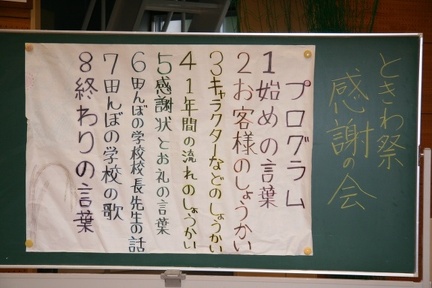 ときわ祭
感謝の会
プログラム
1始めの言葉
2お客様のしょうかい
3キャラクターなどのしょうかい
41年間の流れのしょうかい
5感謝状とお礼の言葉
6田んぼの学校校長先生の話
7田んぼの学校の歌
8終わりの言葉